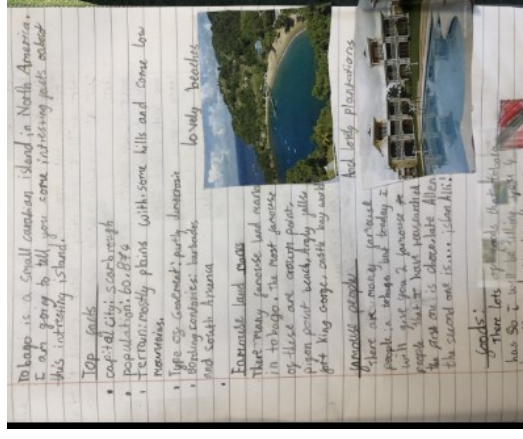 Tobago is a small carabian island in North America.
I am going to tell you some intresting facts about
this intresting island!
Top facts
• capital City: scarbrough
• population: 60,874
• Terrain: mostly plains with some hills and some low
mountains.
• Type of Goverment: party democratic
• Boarding companies: barbados
and South America
lovely beaches
Farmouse land marks
There many famouse land marks
in tobago. The most famouse
of these are crown point,
pigon point beach, Argyle falls
fort king George castle bay
And lovly plantations
famouse people
There are many famouse
people in tobago but today I
will give you 2 famouse
people that I have reaserched
the first one is chocolate Allen
the second one is.... island Alli!
foods:
There lots of foods that
has so I will be telling you 4